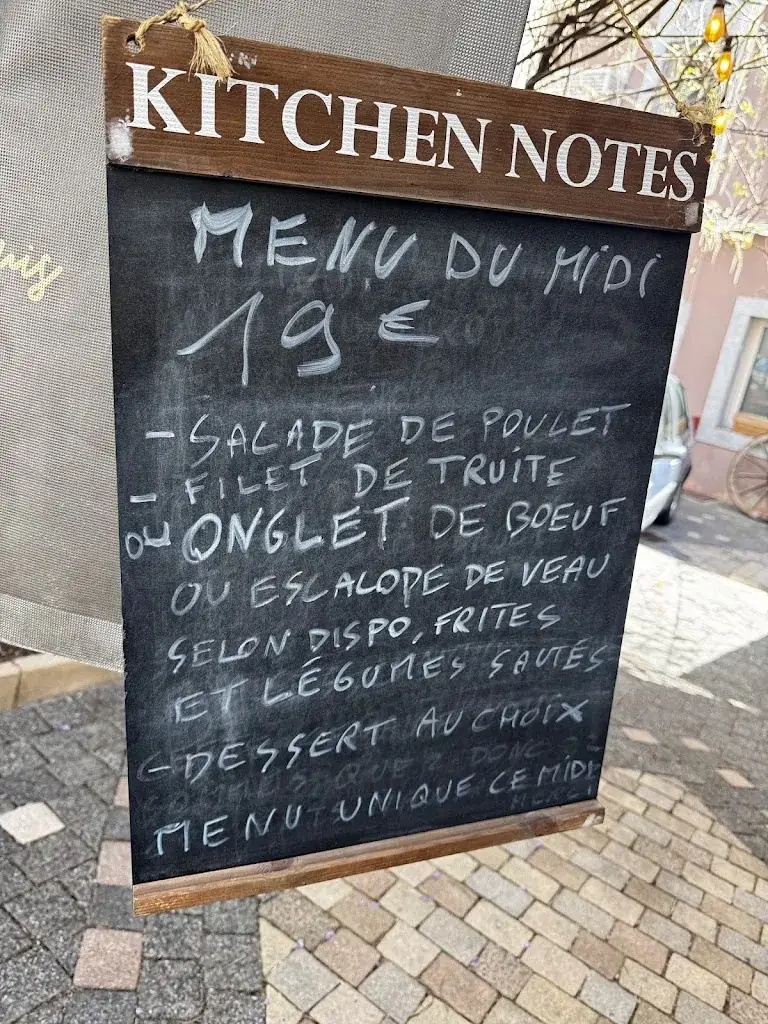 KITCHEN NOTES
MENU DU MIDI
19 €
- SALADE DE POULET
- FILET DE TRUITE
OU ONGLET DE BOEUF
OU ESCALOPE DE VEAU
SELON DISPO, FRITES
ET LÉGUMES SAUTÉS
- DESSERT AU CHOIX
MENU UNIQUE CE MIDI